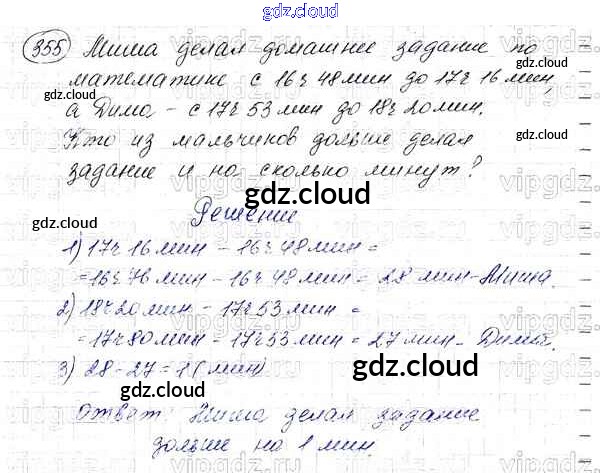 gdz.cloud
355 Миша делал домашнее задание по
математике с 16ч 48мин до 17ч 16мин,
а Дима - с 17ч 53мин до 18ч 20мин.
Кто из мальчиков дольше делал
задание и на сколько минут?
gdz.cloud
Решение
1) 17ч 16мин - 16ч 48мин =
= 16ч 76мин - 16ч 48мин = 28 мин - Миша.
2) 18ч 20мин - 17ч 53мин =
= 17ч 80мин - 17ч 53мин = 27мин - Дима.
3) 28 - 27 = 1 (мин)
gdz.cloud
Ответ: Миша делал задание
дольше на 1 мин.